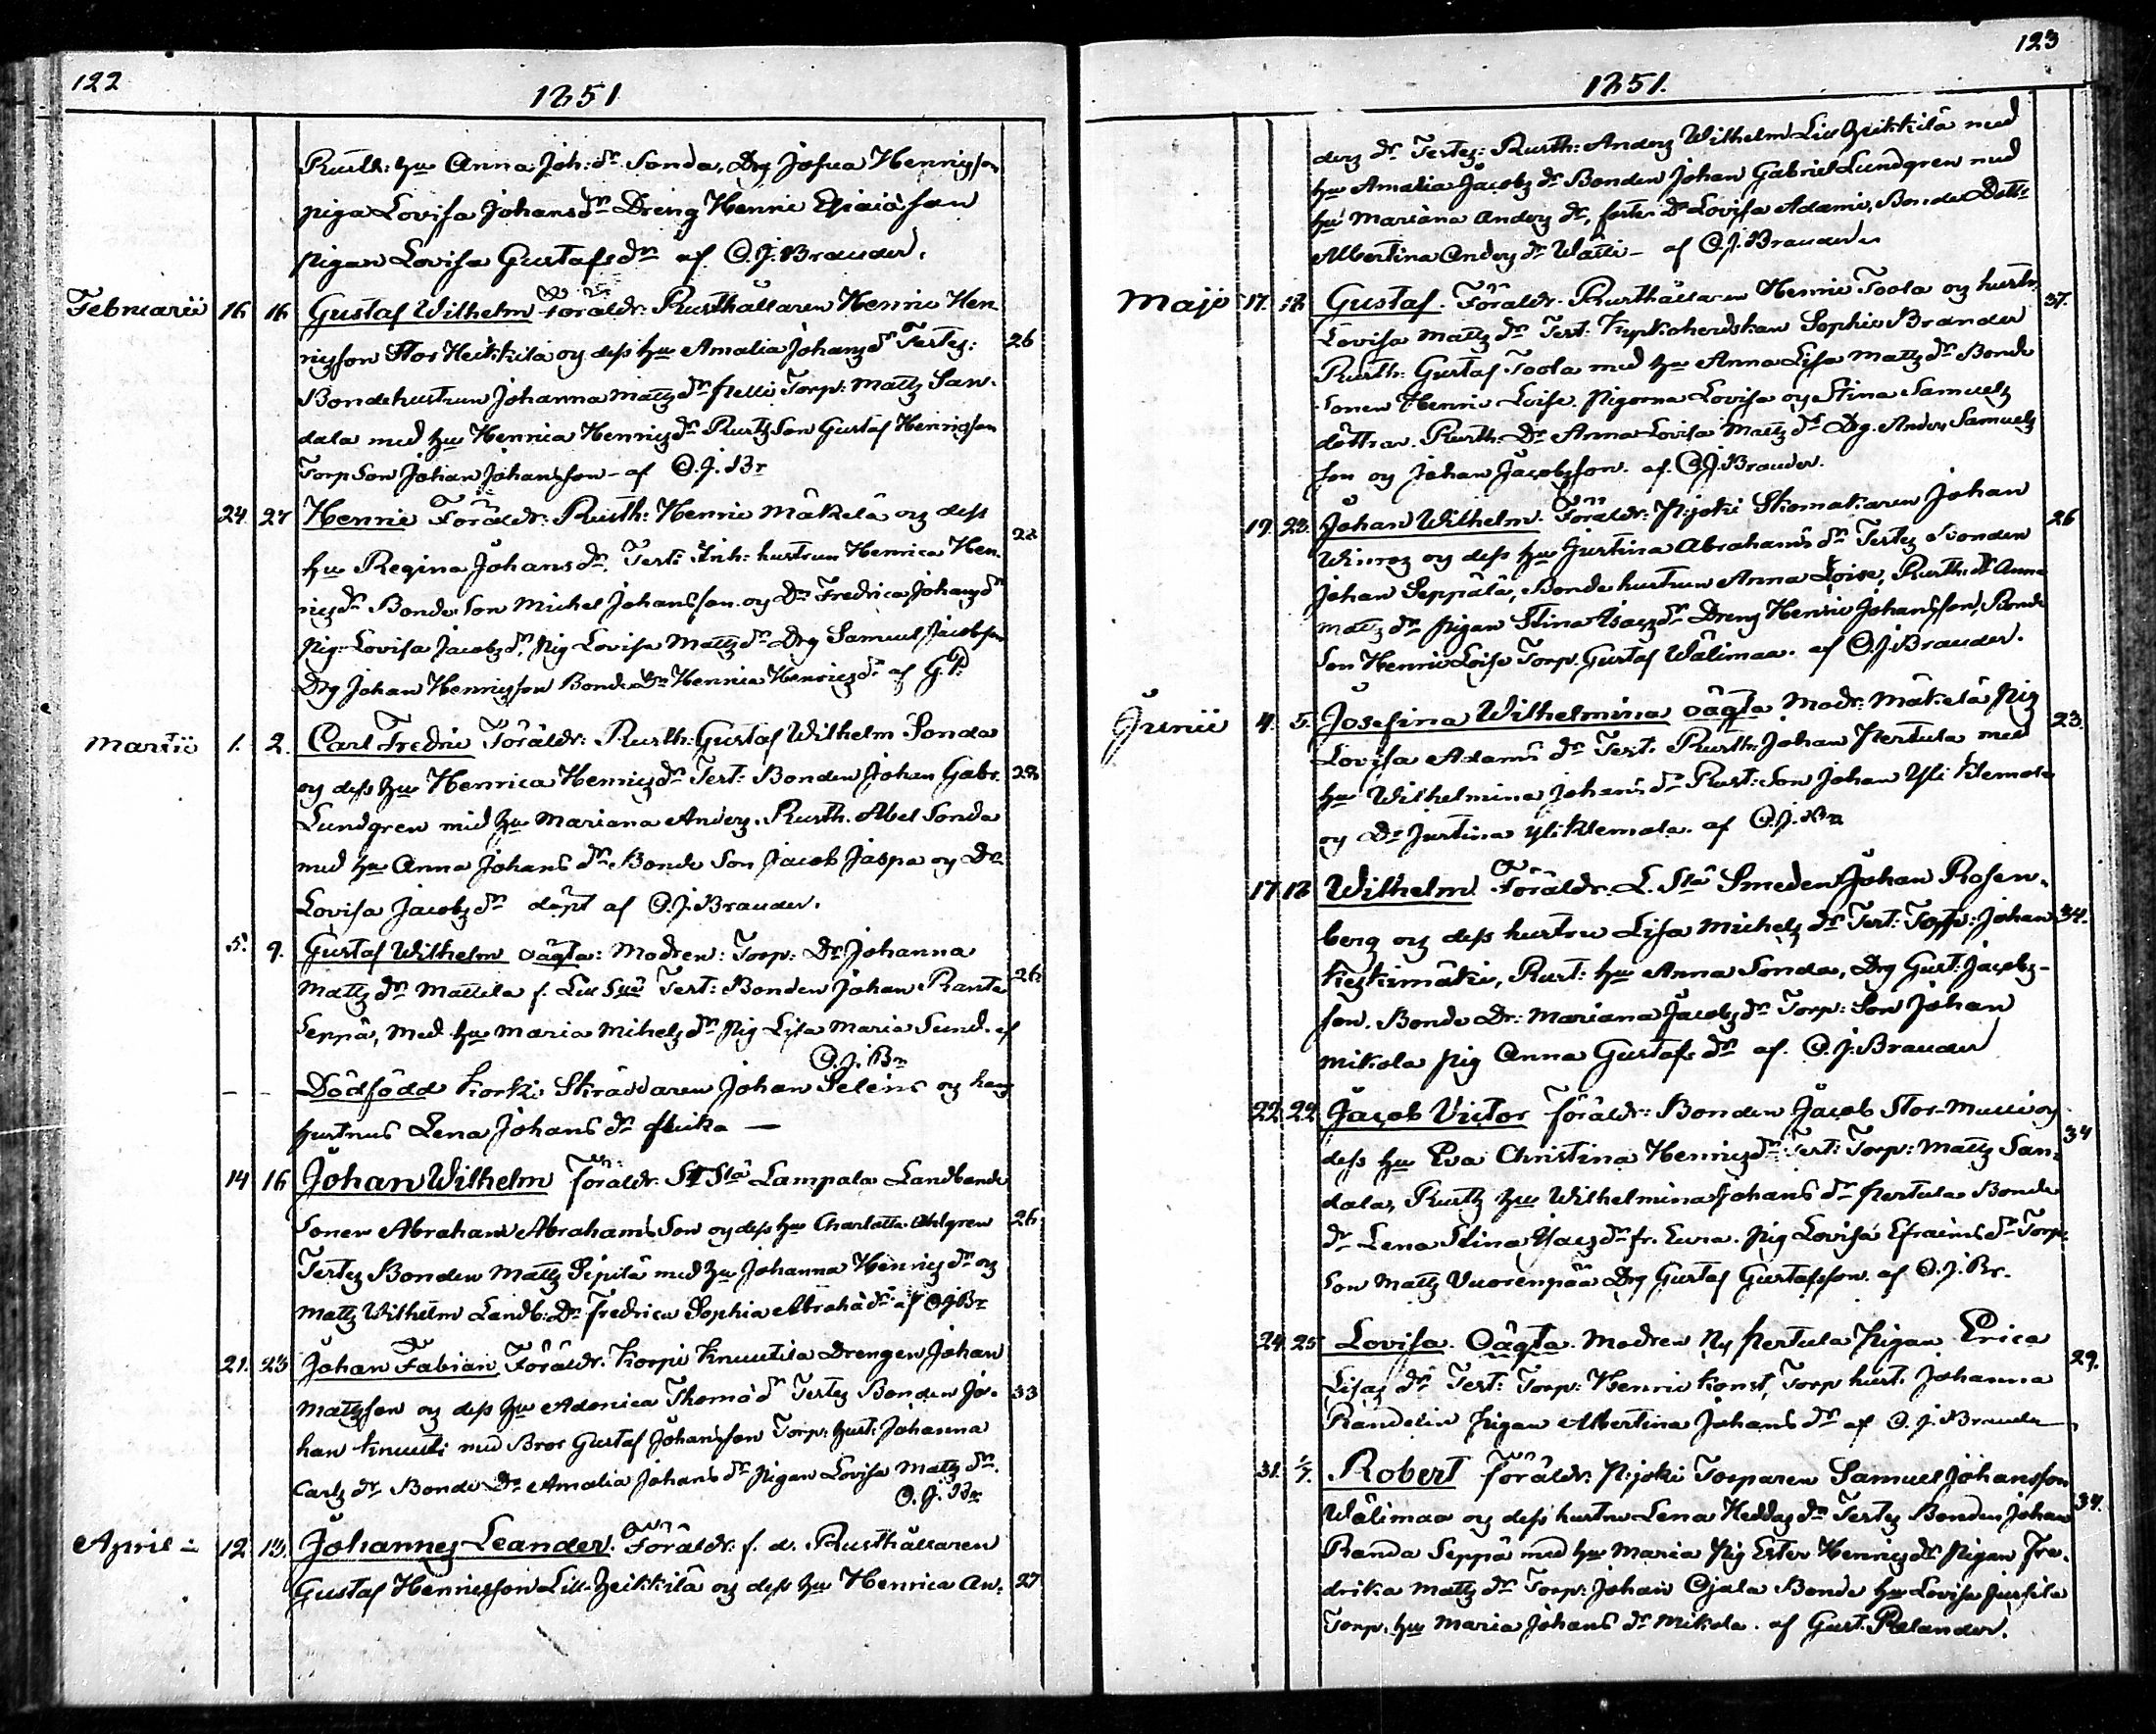 122
1851
Rusth: hu Anna Joh: dr Sonda, Drg Josua Henricsson
piga Lovisa Johansdr Dreng Henric Esaiasson
pigan Lovisa Gustafsdr af C. J. Brander.
Februarii 16 16 Gustaf Wilhelm Föräldr: Rusthållaren Henric Hen
ricsson Stor Heikkilä og dess hu Amalia Johansdr Testes: 26
Bondehustrun Johanna Mattsdr Torp: Matts San-
dala med hu Henrica Henricsdr Rusth Son Gustaf Henricsson
Torp Son Johan Johansson - af C. J. Br
24. 27 Henric Föräldr: Rusth: Henric Mäkelä og dess
hu Regina Johansdr. Test: Inh: hustrun Henrica Hen- 22
ricsdr Bonde Son Michel Johansson og Dr Fredrica Johansdr
Pig: Lovisa Jacobsdr, Pig Lovisa Mattsdr Drg Samuel Jacobsson
Drg Johan Henricsson Bonde Dr Henrica Henricsdr af G. P.
Martii 1. 2. Carl Fredric Föräldr: Rusth: Gustaf Wilhelm Sonda
og dess hu Henrica Henricsdr Test: Bonden Johan Gabr. 28
Lundgren mid hu Mariana Anders. Rusth. Abel Sonda
med hu Anna Johans dr Bonde Son Jacob Jaspa og Dr
Lovisa Jacobsdr döpt af C. J. Brander.
5. 9. Gustaf Wilhelm oägta: Modren: Torp: Dr Johanna
Mattsdr Mattila f. Test: Bonden Johan Ranta 26
Seppä, med hu Maria Mihelsdr Pig Lisa Maria Sund. af
C. J. Br
- - Dödfödd Korki Skräddaren Johan Selens og hans
hustrus Lena Johans dr flicka —
14 16 Johan Wilhelm Föräldr. Lampala Landbonde
Sonen Abraham Abrahams Son og dess hu Charlotta Ahlgren 26
Testes Bonden Matts Sipilä med hu Johanna Henricsdr og
Matts Wilhelm Landb: Dr Fredrica Sophia Abrahadr af C J Br
21. 23 Johan Fabian Föräldr. Korpi Knuutila Drengen Johan
Mattsson og dess hu Adonica Thomædr Testes Bonden Jo- 33
han Knuuti med Bror Gustaf Johansson Torp: hust: Johanna
Carls dr Bonde Dr Amalia Johans dr Pigan Lovisa Matts dr.
C. J. Br
April - 12 13. Johannes Leander. Föräldr. f. d. Rusthållaren
Gustaf Henricsson Lill-Heikkilä og dess hu Henrica An- 27
123
1851.
ders dr Testes: Rusth: Anders Wilhelm Lill Heikkilä med
hu Amalia Jacobs dr Bonden Johan Gabriel Lundgren med
hu Mariana Anders dr, foster Dr Lovisa Adami, Bonde Dottr
Albertina Anders dr Wälli - af C. J. Brander
Maji 17. 18 Gustaf. Föräldr. Rusthållaren Henric Toola og hustr. 37.
Lovisa Matts dr Test: Kyrkoherdskan Sophie Brander
Rusth: Gustaf Toola med hu Anna Lisa Matts dr Bonde
Sonen Henric Loise. Pigorna Lovisa og Stina Samuels
döttrar. Rusth. Dr Anna Lovisa Matts dr Drg. Anders Samuels
son og Johan Jacobsson. af. C. J. Brander.
19. 23. Johan Wilhelm. Föräldr: Pijoki Skomakaren Johan 26
Winroos og dess hu Justina Abrahams dr Testes Bonden
Johan Seppälä, Bonde hustrun Anna Loise, Rusth: dr Anna
Matts dr Pigan Stina Isacs dr Dreng Henric Johansson, Bonde
Son Henric Loise Torp. Gustaf Wälimaa. af C. J. Brander.
Junii 4. 5. Josefina Wilhelmina oägta Modr: Mäkelä Pig 23.
Lovisa Adams dr Test. Rusth: Johan Pertula med
hu Wilhelmina Johans dr Rust: Son Johan Yli Klemola
og Dr Justina Yli Klemola. af C. J. Br
17 18 Wilhelm Föräldr. L. Smeden Johan Rosen-
berg og dess hustru Lisa Michels dr Test: Johan 34.
Keskimäki, Rust: hu Anna Sonda, Drg Gust: Jacobs-
son. Bonde Dr: Mariana Jacobs dr Torp: Son Johan
Mikola Pig Anna Gustafs dr af. C. J. Brander
22. 22. Jacob Victor Föräldr: Bonden Jacob Stor-Mucci og 34
dess hu Eva Christina Henricsdr Test: Torp: Matts San-
dala, Rusth hu Wilhelmina Johans dr Pertula Bonde
dr Lena Stina Isacsdr fr. Eura. Pig Lovisa Efraims dr Torp.
Son Matts Vuorenpää Drg Gustaf Gustafsson. af C. J. Br.
24. 25 Lovisa. Oägta. Modren Ny Pertula Pigan Erica 29.
Lisas dr Test: Torp: Henric Konst, Torp hust. Johanna
Randelin Pigan Albertina Johans dr af C. J. Brander
31. 1/7. Robert Föräldr: Pijoki Torparen Samuel Johansson
Wälimaa og dess hustru Lena Heddas dr Testes Bonden Johan 34.
Randa Seppä med hu Maria Pig Ester Henricsdr Pigan Fre-
drika Matts dr Torp: Johan Ojala Bonde hu Lovisa Jussila
Torp. hu Maria Johans dr Mikola. af Gust. Relander.